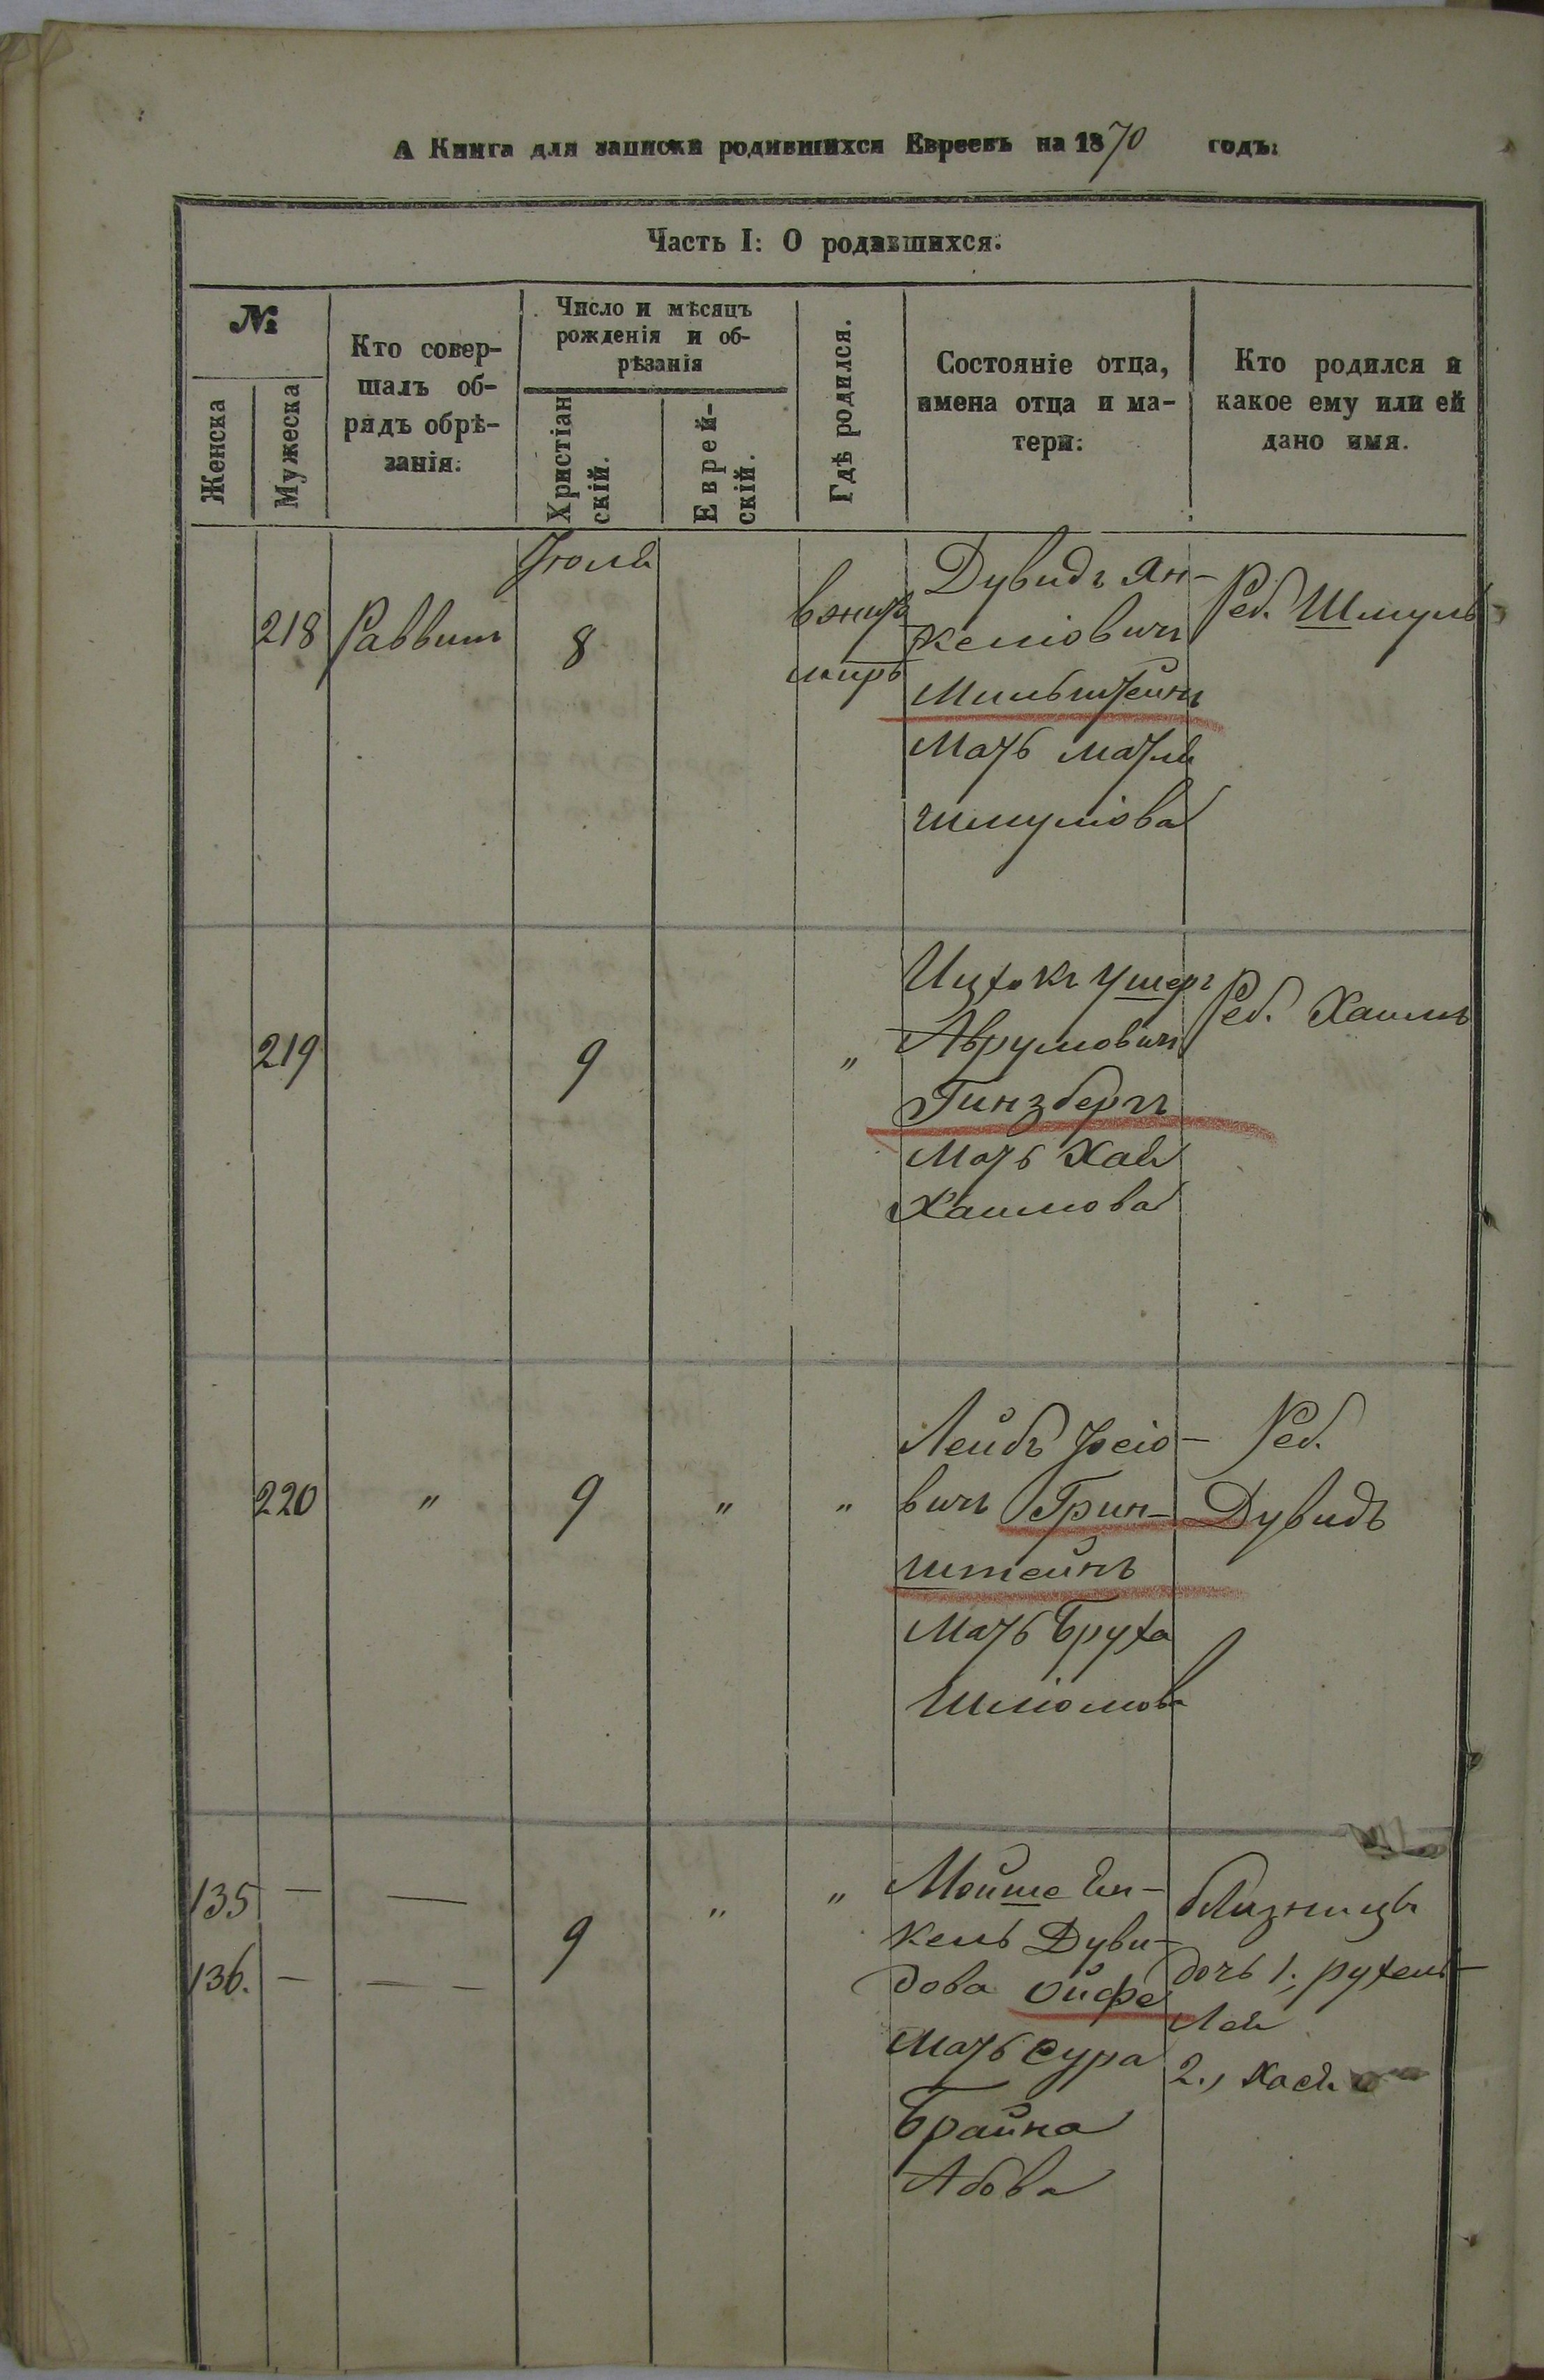 А Книга для записки родившихся Евреевъ на 1870 годъ:
Часть I: О родившихся.
№
Женска
Мужеска
Кто совер-
шалъ об-
рядъ обрѣ-
занія:
Число и мѣсяцъ
рожденія и об-
рѣзанія
Христіан
скій.
Еврей-
скій.
Гдѣ родился.
Состояніе отца,
имена отца и ма-
тери:
Кто родился и
какое ему или ей
дано имя.
Іюля
218 Раввинъ 8
в жито
миръ
Дувидъ Ян-
келіовичъ
Мильштейнъ
Мать Матля
Шмуліова
Реб. Шмуль
219 9 "
Ицхокъ Ушеръ
Аврумовичъ
Гинзбергъ
Мать Хая
Хаимова
Реб. Хаимъ
220 " 9 " "
Лейбъ Іосіо-
вичъ Грин-
штейнъ
Мать Бруха
Шліомова
Реб.
Дувидъ
135 — —
136. — — —
9 " "
Мойше
кель Дуви-
дова Ойфе
Мать Сура
Брайна
Абова
близницы
дочь 1., Рухель-
Лея
2.,